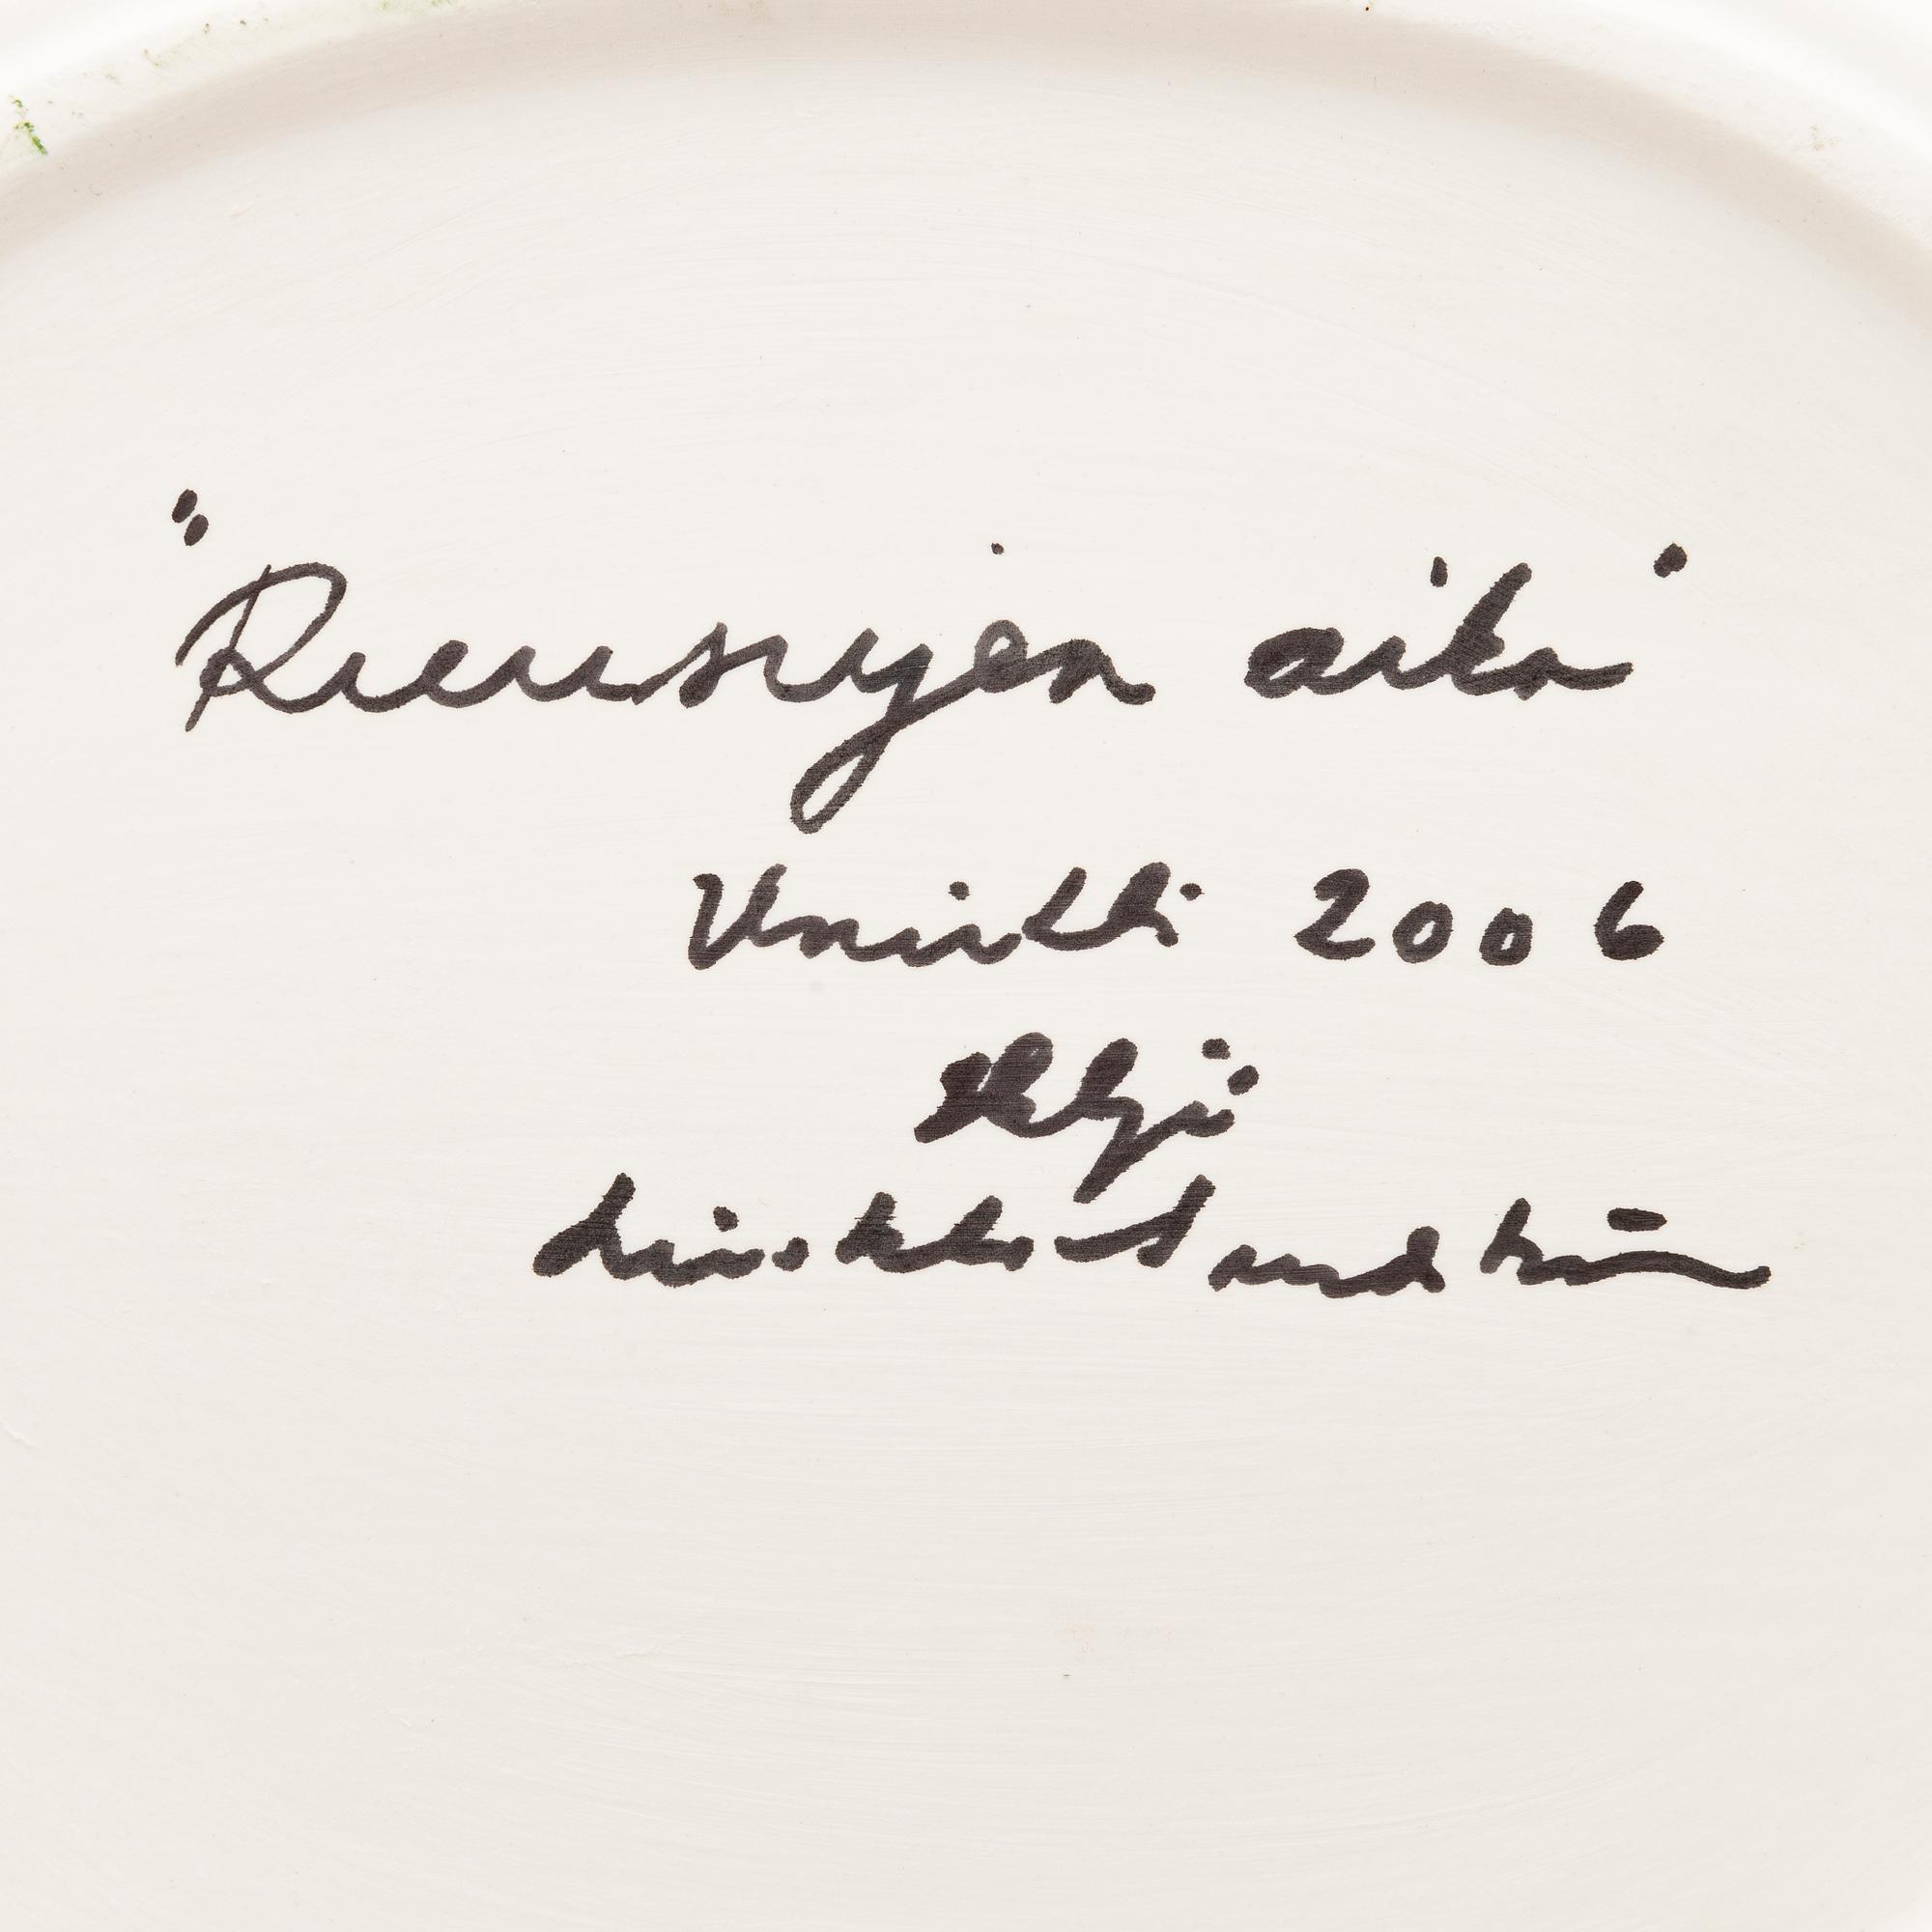 "Ruusujen aika"
Uniikki 2006
Heljä
Liukko-Sundström